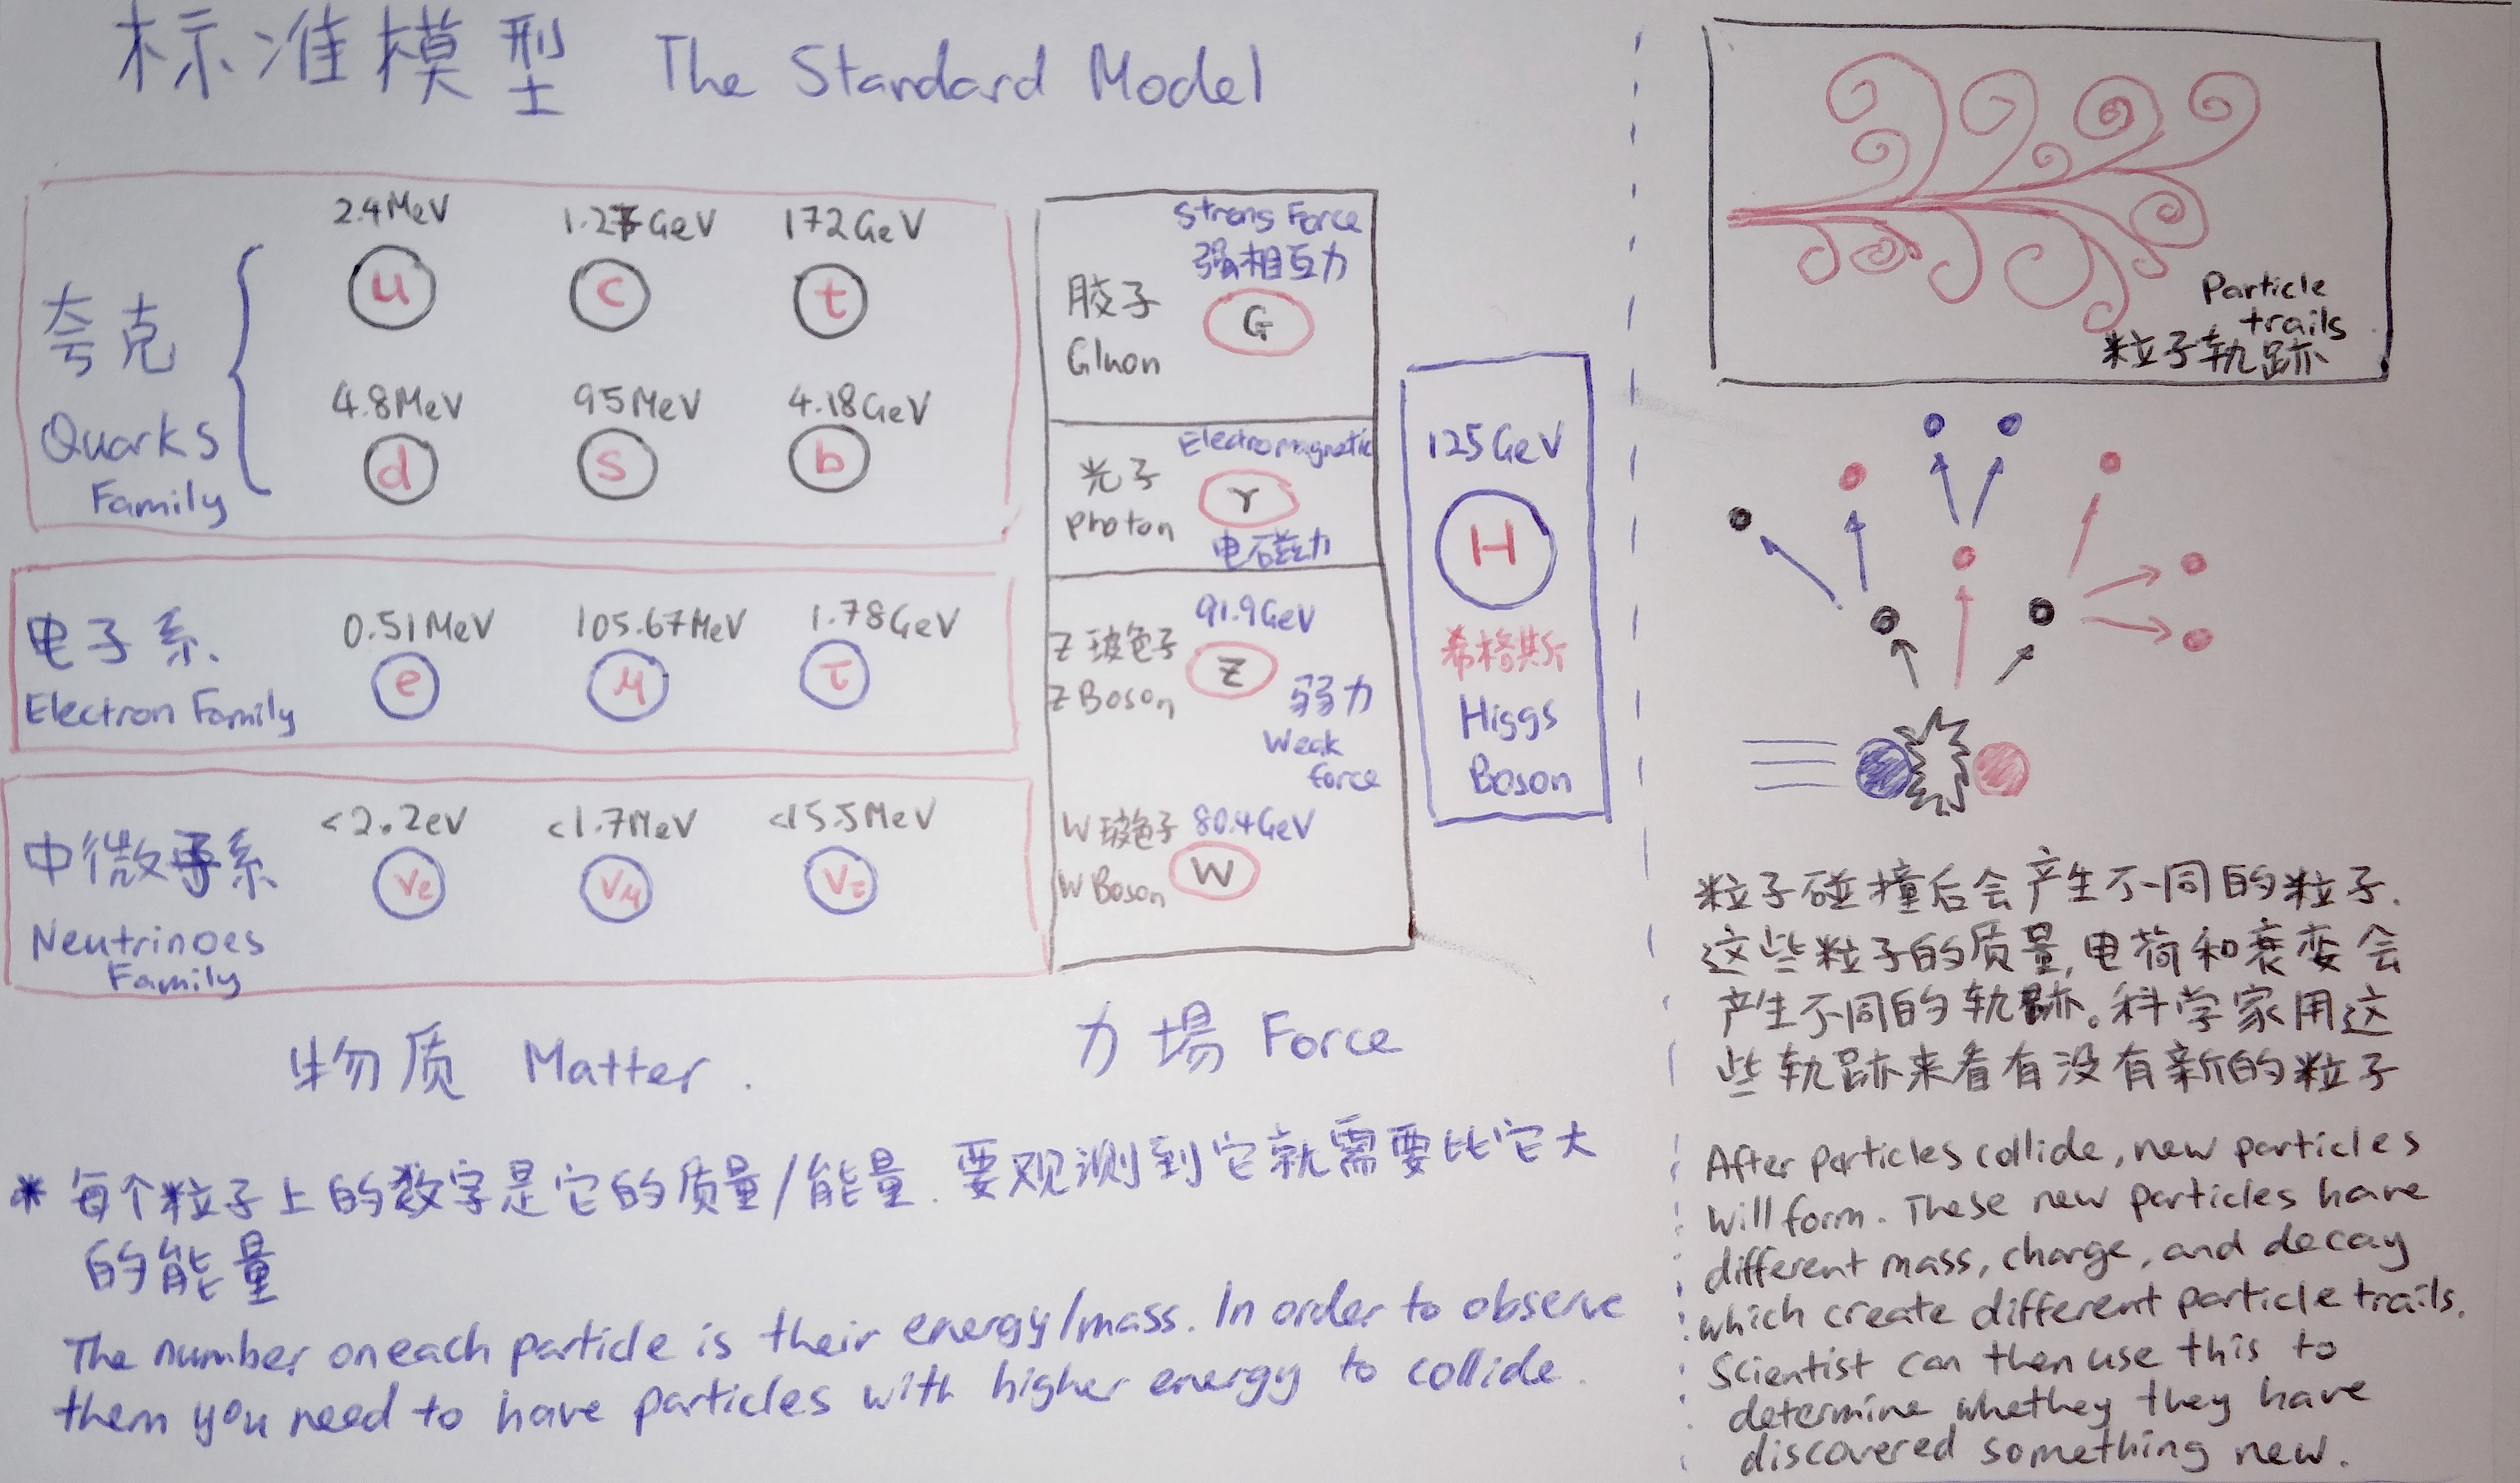 标准模型 The Standard Model
2.4MeV 1.27GeV 172GeV
u c t
夸克
Quarks
Family
4.8MeV 95MeV 4.18GeV
d s b
电子系
Electron Family
0.51MeV 105.67MeV 1.78GeV
e μ τ
中微子系
Neutrinoes
Family
<2.2eV <1.7MeV <15.5MeV
Ve Vμ Vτ
物质 Matter.
Strong Force
强相互力
胶子
Gluon
G
Electromagnetic
光子
photon
γ
电磁力
91.9GeV
Z 玻色子
Z Boson
Z
弱力
Weak
force
W 玻色子 80.4GeV
W Boson
W
力場 Force
125GeV
H
希格斯
Higgs
Boson
* 每个粒子上的数字是它的质量/能量.要观测到它就需要比它大
的能量
The number on each particle is their energy/mass. In order to observe
them you need to have particles with higher energy to collide.
Particle
trails
粒子軌跡
粒子碰撞后会产生不同的粒子.
这些粒子的质量,电荷和衰变会
产生不同的轨跡。科学家用这
些轨跡来看有没有新的粒子
After particles collide, new particles
will form. These new particles have
different mass, charge, and decay
which create different particle trails.
Scientist can then use this to
determine whethey they have
discovered something new.